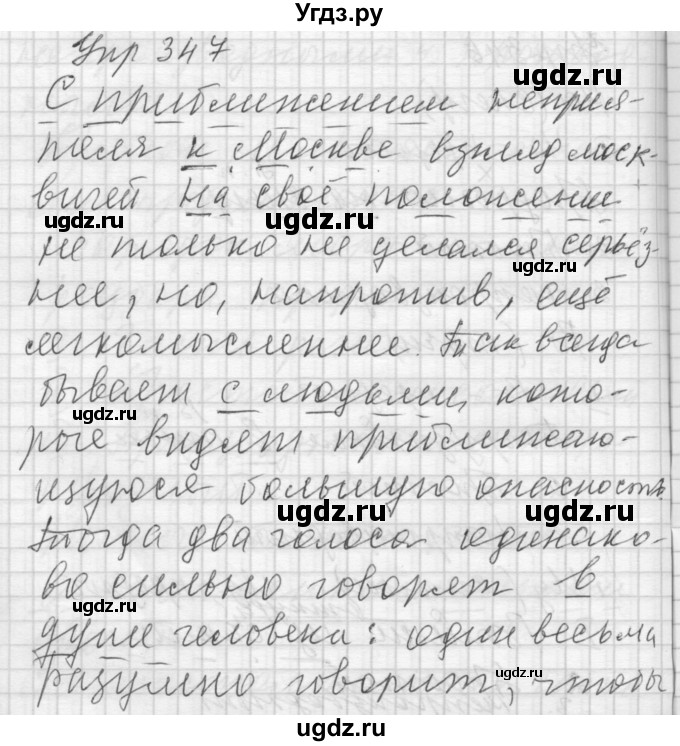 Угдз.ру
Упр 347
С приближением неприя-
теля к Москве взгляд моск-
вичей на своё положении
не только не делался серьёз-
нее, но, напротив, ещё
легкомысленнее. Так всегда
бывает с людьми, кото-
рые видят приближаю-
щуюся большую опасность.
Тогда два голоса одинако-
во сильно говорят в
душе человека: один весьма
разумно говорит, чтобы
ugdz.ru
ugdz.ru
ugdz.ru
ugdz.ru
ugdz.ru
ugdz.ru
ugdz.ru
ugdz.ru
ugdz.ru
ugdz.ru
ugdz.ru
ugdz.ru
Угдз.ру